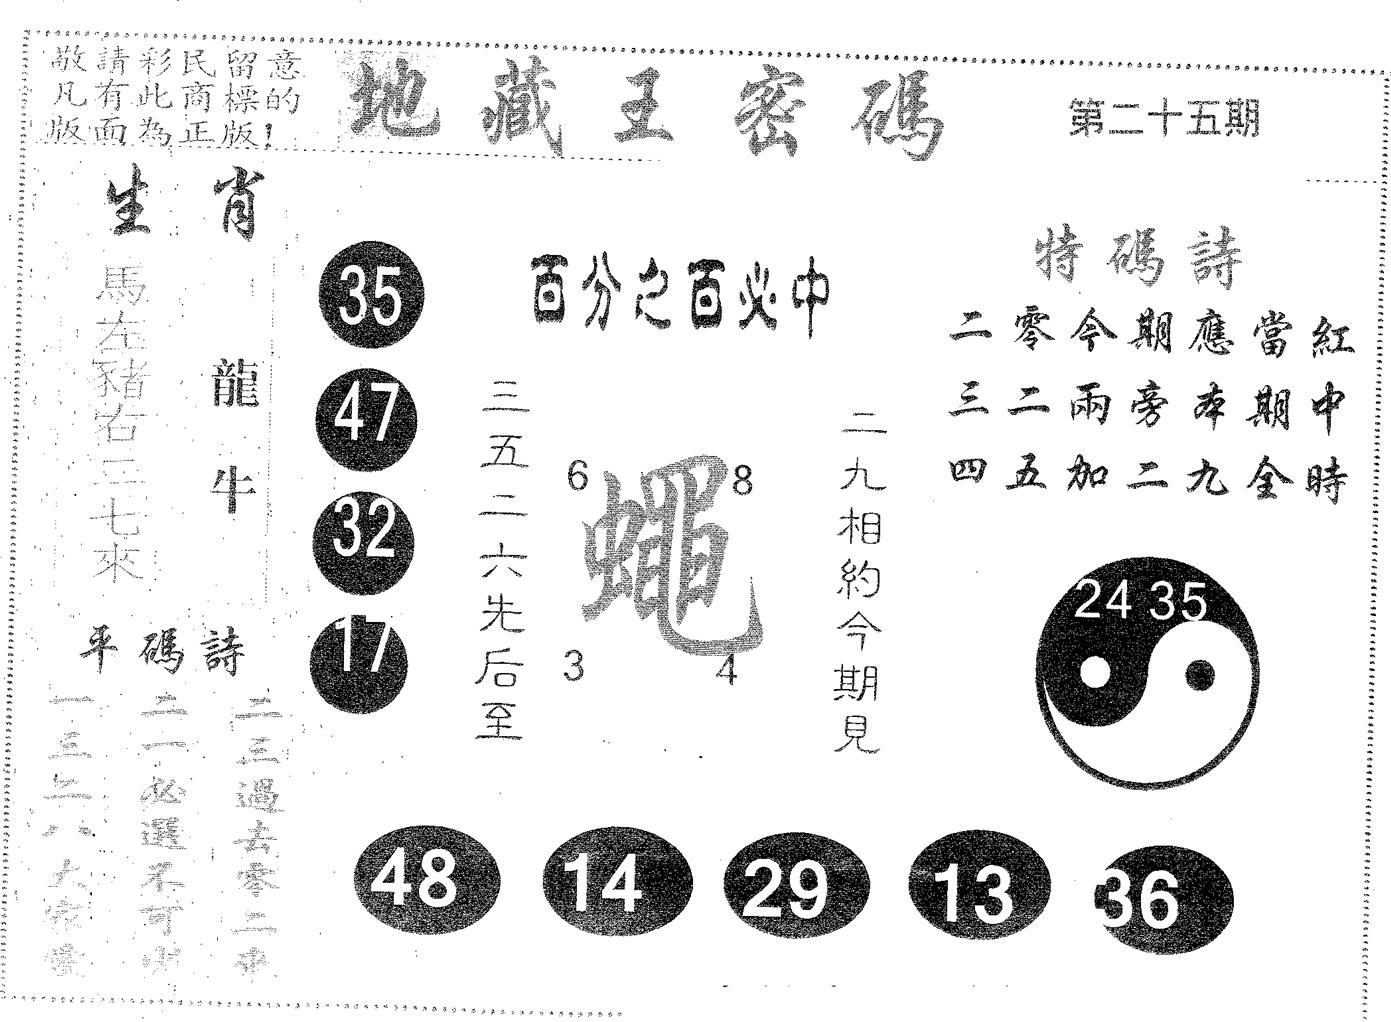 敬請彩民留意
凡有此商標的
版面為正版!
地藏王密碼
第二十五期
生肖
馬左豬右三七來
龍牛
35
47
32
17
百分之百必中
三五二六先后至
6
8
蠅
3
4
二九相約今期見
特碼詩
二零今期應當紅
三二兩旁本期中
四五加二九全時
24 35
平碼詩
一三二八大家
二一必選不可
二三過去零二來
48
14
29
13
36